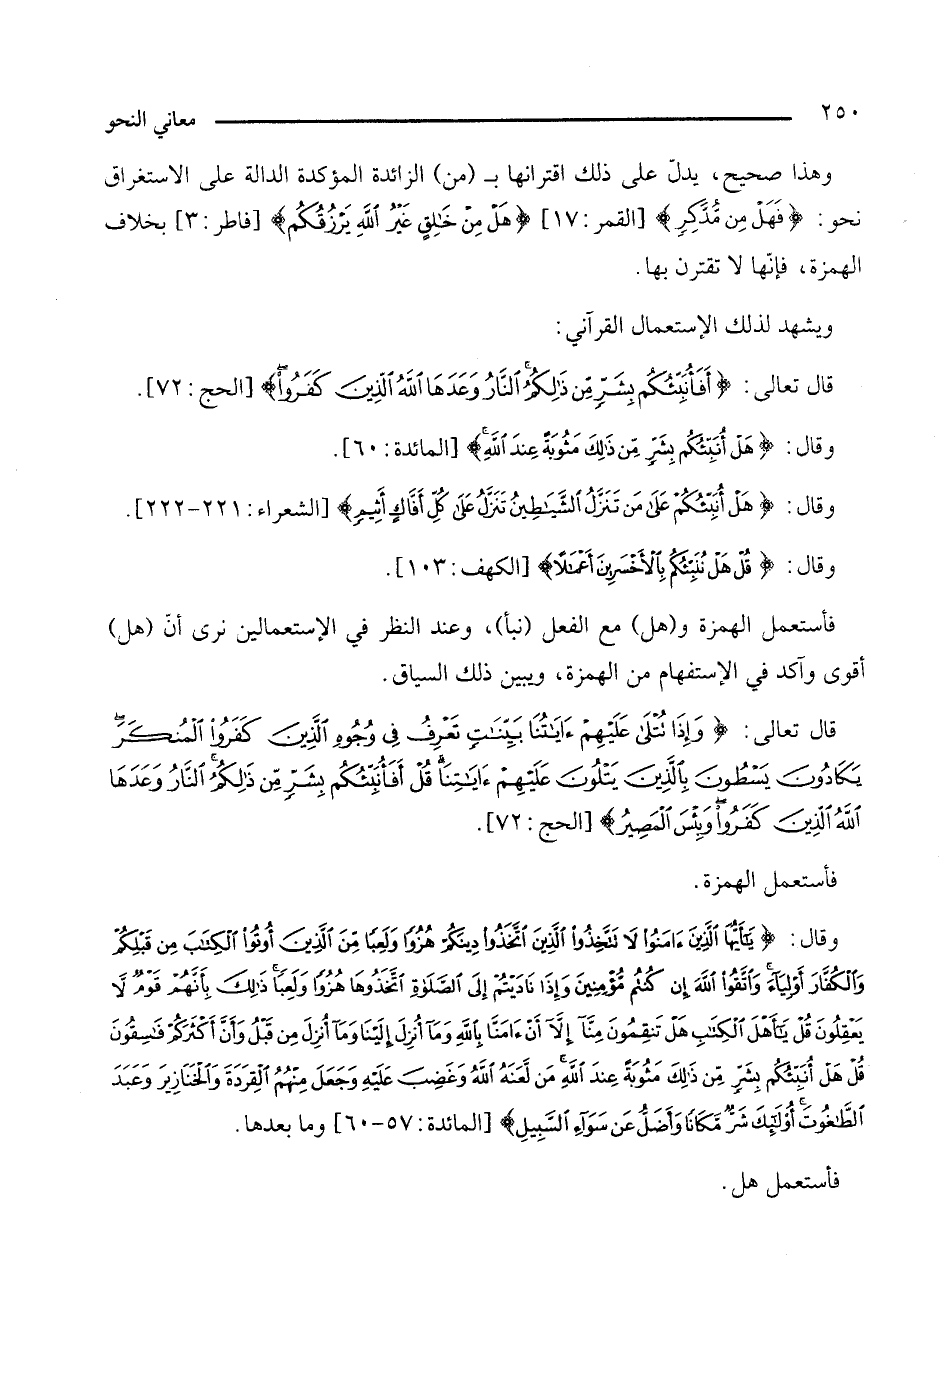 ٢٥٠ معاني النحو
وهذا صحيح، يدلّ على ذلك اقترانها بـ (من) الزائدة المؤكدة الدالة على الاستغراق
نحو: ﴿فَهَلْ مِن مُّدَّكِرٍ﴾ [القمر: ١٧] ﴿هَلْ مِنْ خَٰلِقٍ غَيْرُ ٱللَّهِ يَرْزُقُكُم﴾ [فاطر: ٣] بخلاف
الهمزة، فإنّها لا تقترن بها.
ويشهد لذلك الإستعمال القرآني:
قال تعالى: ﴿أَفَأُنَبِّئُكُم بِشَرٍّ مِّن ذَٰلِكُمُ ۗ ٱلنَّارُ وَعَدَهَا ٱللَّهُ ٱلَّذِينَ كَفَرُوا۟ ۖ﴾ [الحج: ٧٢].
وقال: ﴿هَلْ أُنَبِّئُكُم بِشَرٍّ مِّن ذَٰلِكَ مَثُوبَةً عِندَ ٱللَّهِ ۚ﴾ [المائدة: ٦٠].
وقال: ﴿هَلْ أُنَبِّئُكُمْ عَلَىٰ مَن تَنَزَّلُ ٱلشَّيَٰطِينُ تَنَزَّلُ عَلَىٰ كُلِّ أَفَّاكٍ أَثِيمٍ﴾ [الشعراء: ٢٢١-٢٢٢].
وقال: ﴿قُلْ هَلْ نُنَبِّئُكُم بِٱلْأَخْسَرِينَ أَعْمَٰلًا﴾ [الكهف: ١٠٣].
فأستعمل الهمزة و(هل) مع الفعل (نبأ)، وعند النظر في الإستعمالين نرى أنّ (هل)
أقوى وآكد في الإستفهام من الهمزة، ويبين ذلك السياق.
قال تعالى: ﴿وَإِذَا تُتْلَىٰ عَلَيْهِمْ ءَايَٰتُنَا بَيِّنَٰتٍ تَعْرِفُ فِى وُجُوهِ ٱلَّذِينَ كَفَرُوا۟ ٱلْمُنكَرَ ۖ
يَكَادُونَ يَسْطُونَ بِٱلَّذِينَ يَتْلُونَ عَلَيْهِمْ ءَايَٰتِنَا ۗ قُلْ أَفَأُنَبِّئُكُم بِشَرٍّ مِّن ذَٰلِكُمُ ۗ ٱلنَّارُ وَعَدَهَا
ٱللَّهُ ٱلَّذِينَ كَفَرُوا۟ ۖ وَبِئْسَ ٱلْمَصِيرُ﴾ [الحج: ٧٢].
فأستعمل الهمزة.
وقال: ﴿يَٰٓأَيُّهَا ٱلَّذِينَ ءَامَنُوا۟ لَا تَتَّخِذُوا۟ ٱلَّذِينَ ٱتَّخَذُوا۟ دِينَكُمْ هُزُوًا وَلَعِبًا مِّنَ ٱلَّذِينَ أُوتُوا۟ ٱلْكِتَٰبَ مِن قَبْلِكُمْ
وَٱلْكُفَّارَ أَوْلِيَآءَ ۚ وَٱتَّقُوا۟ ٱللَّهَ إِن كُنتُم مُّؤْمِنِينَ وَإِذَا نَادَيْتُمْ إِلَى ٱلصَّلَوٰةِ ٱتَّخَذُوهَا هُزُوًا وَلَعِبًا ۚ ذَٰلِكَ بِأَنَّهُمْ قَوْمٌ لَّا
يَعْقِلُونَ قُلْ يَٰٓأَهْلَ ٱلْكِتَٰبِ هَلْ تَنقِمُونَ مِنَّآ إِلَّآ أَنْ ءَامَنَّا بِٱللَّهِ وَمَآ أُنزِلَ إِلَيْنَا وَمَآ أُنزِلَ مِن قَبْلُ وَأَنَّ أَكْثَرَكُمْ فَٰسِقُونَ
قُلْ هَلْ أُنَبِّئُكُم بِشَرٍّ مِّن ذَٰلِكَ مَثُوبَةً عِندَ ٱللَّهِ ۚ مَن لَّعَنَهُ ٱللَّهُ وَغَضِبَ عَلَيْهِ وَجَعَلَ مِنْهُمُ ٱلْقِرَدَةَ وَٱلْخَنَازِيرَ وَعَبَدَ
ٱلطَّٰغُوتَ ۚ أُو۟لَٰٓئِكَ شَرٌّ مَّكَانًا وَأَضَلُّ عَن سَوَآءِ ٱلسَّبِيلِ﴾ [المائدة: ٥٧-٦٠] وما بعدها.
فأستعمل هل.